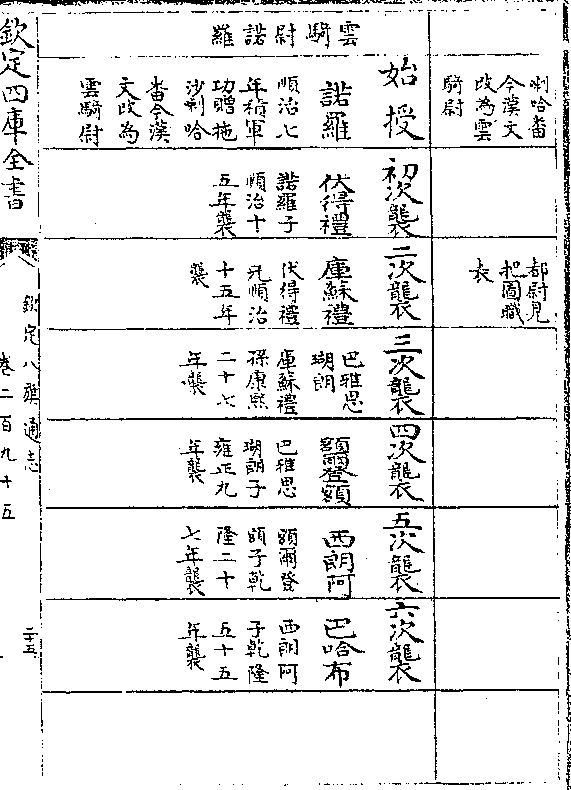 喇哈番
今漢文
改為雲
騎尉
都尉見
把圖職
表
雲騎尉諾羅
始授
諾羅
順治七
年積軍
功贈拖
沙喇哈
番今漢
文改為
雲騎尉
初次襲
伏得禮
諾羅子
順治十
五年襲
二次襲
庫蘇禮
伏得禮
兄順治
十五年
襲
三次襲
巴雅思
瑚朗
庫蘇禮
孫康熙
二十七
年襲
四次襲
額爾登額
巴雅思
瑚朗子
雍正九
年襲
五次襲
西朗阿
額爾登
額子乾
隆二十
七年襲
六次襲
巴哈布
西朗阿
子乾隆
五十五
年襲
欽定四庫全書
欽定八旗通志
卷二百九十五
二十五